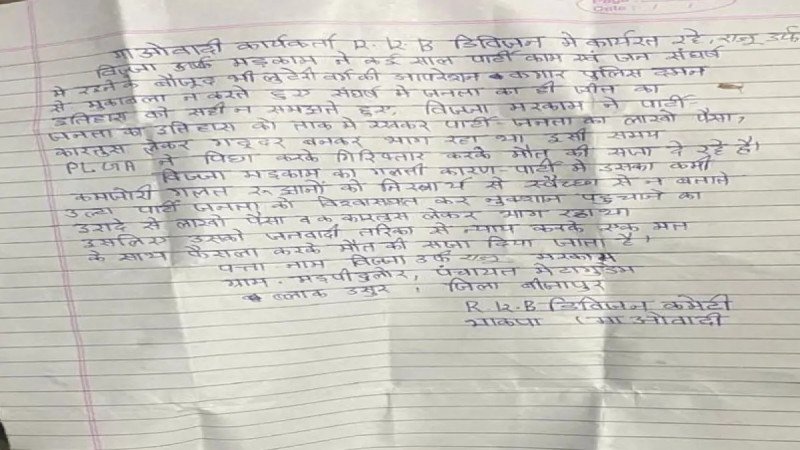 Page
Date: / /
माओवादी कार्यकर्ता R.K.B डिविजन मे कार्यरत रहे, राजू उर्फ
विज्जा उर्फ मड़काम ने कई साल पार्टी काम एवं जन संघर्ष
मे रहने के बौजूद भी लुटेरी वर्ग की आपरेशन कगार पुलिस दमन
से मुकाबला न करते हुए संघर्ष मे जनता का ही जीत का
इतिहास को सही न समझते हुए, विज्जा मरकाम ने पार्टी-
जनता का इतिहास को ताक मे रखकर पार्टी जनता का लाखो पैसा,
कारतुस लेकर गद्दार बनकर भाग रहा था उसी समय
PLGA ने पिछा करके गिरिफ्तार करके मौत की सजा दे रहे है।
विज्जा मड़काम का गलती कारण- पार्टी मे उसका कमी
कमजोरी गलत रूझानों को निस्वार्थ से स्वेच्छा से न बताते
उल्टा पार्टी जनता को विश्वासघात कर नुकशान पहुचाने का
इरादे से लाखो पैसा व कारतुस लेकर भाग रहा था
इसलिए उसको जनवादी तरिका से न्याय करके एक मत
के साथ फैसला करके मौत की सजा दिया जाता है,
पत्ता नाम विज्जा उर्फ राजू मरकाम
ग्राम- मड़पीदुलोर, पंचायत मेटागुडम
ब्लाक उसुर, जिला बीजापुर
R.K.B डिविजन कमेटी
भाकपा (माओवादी